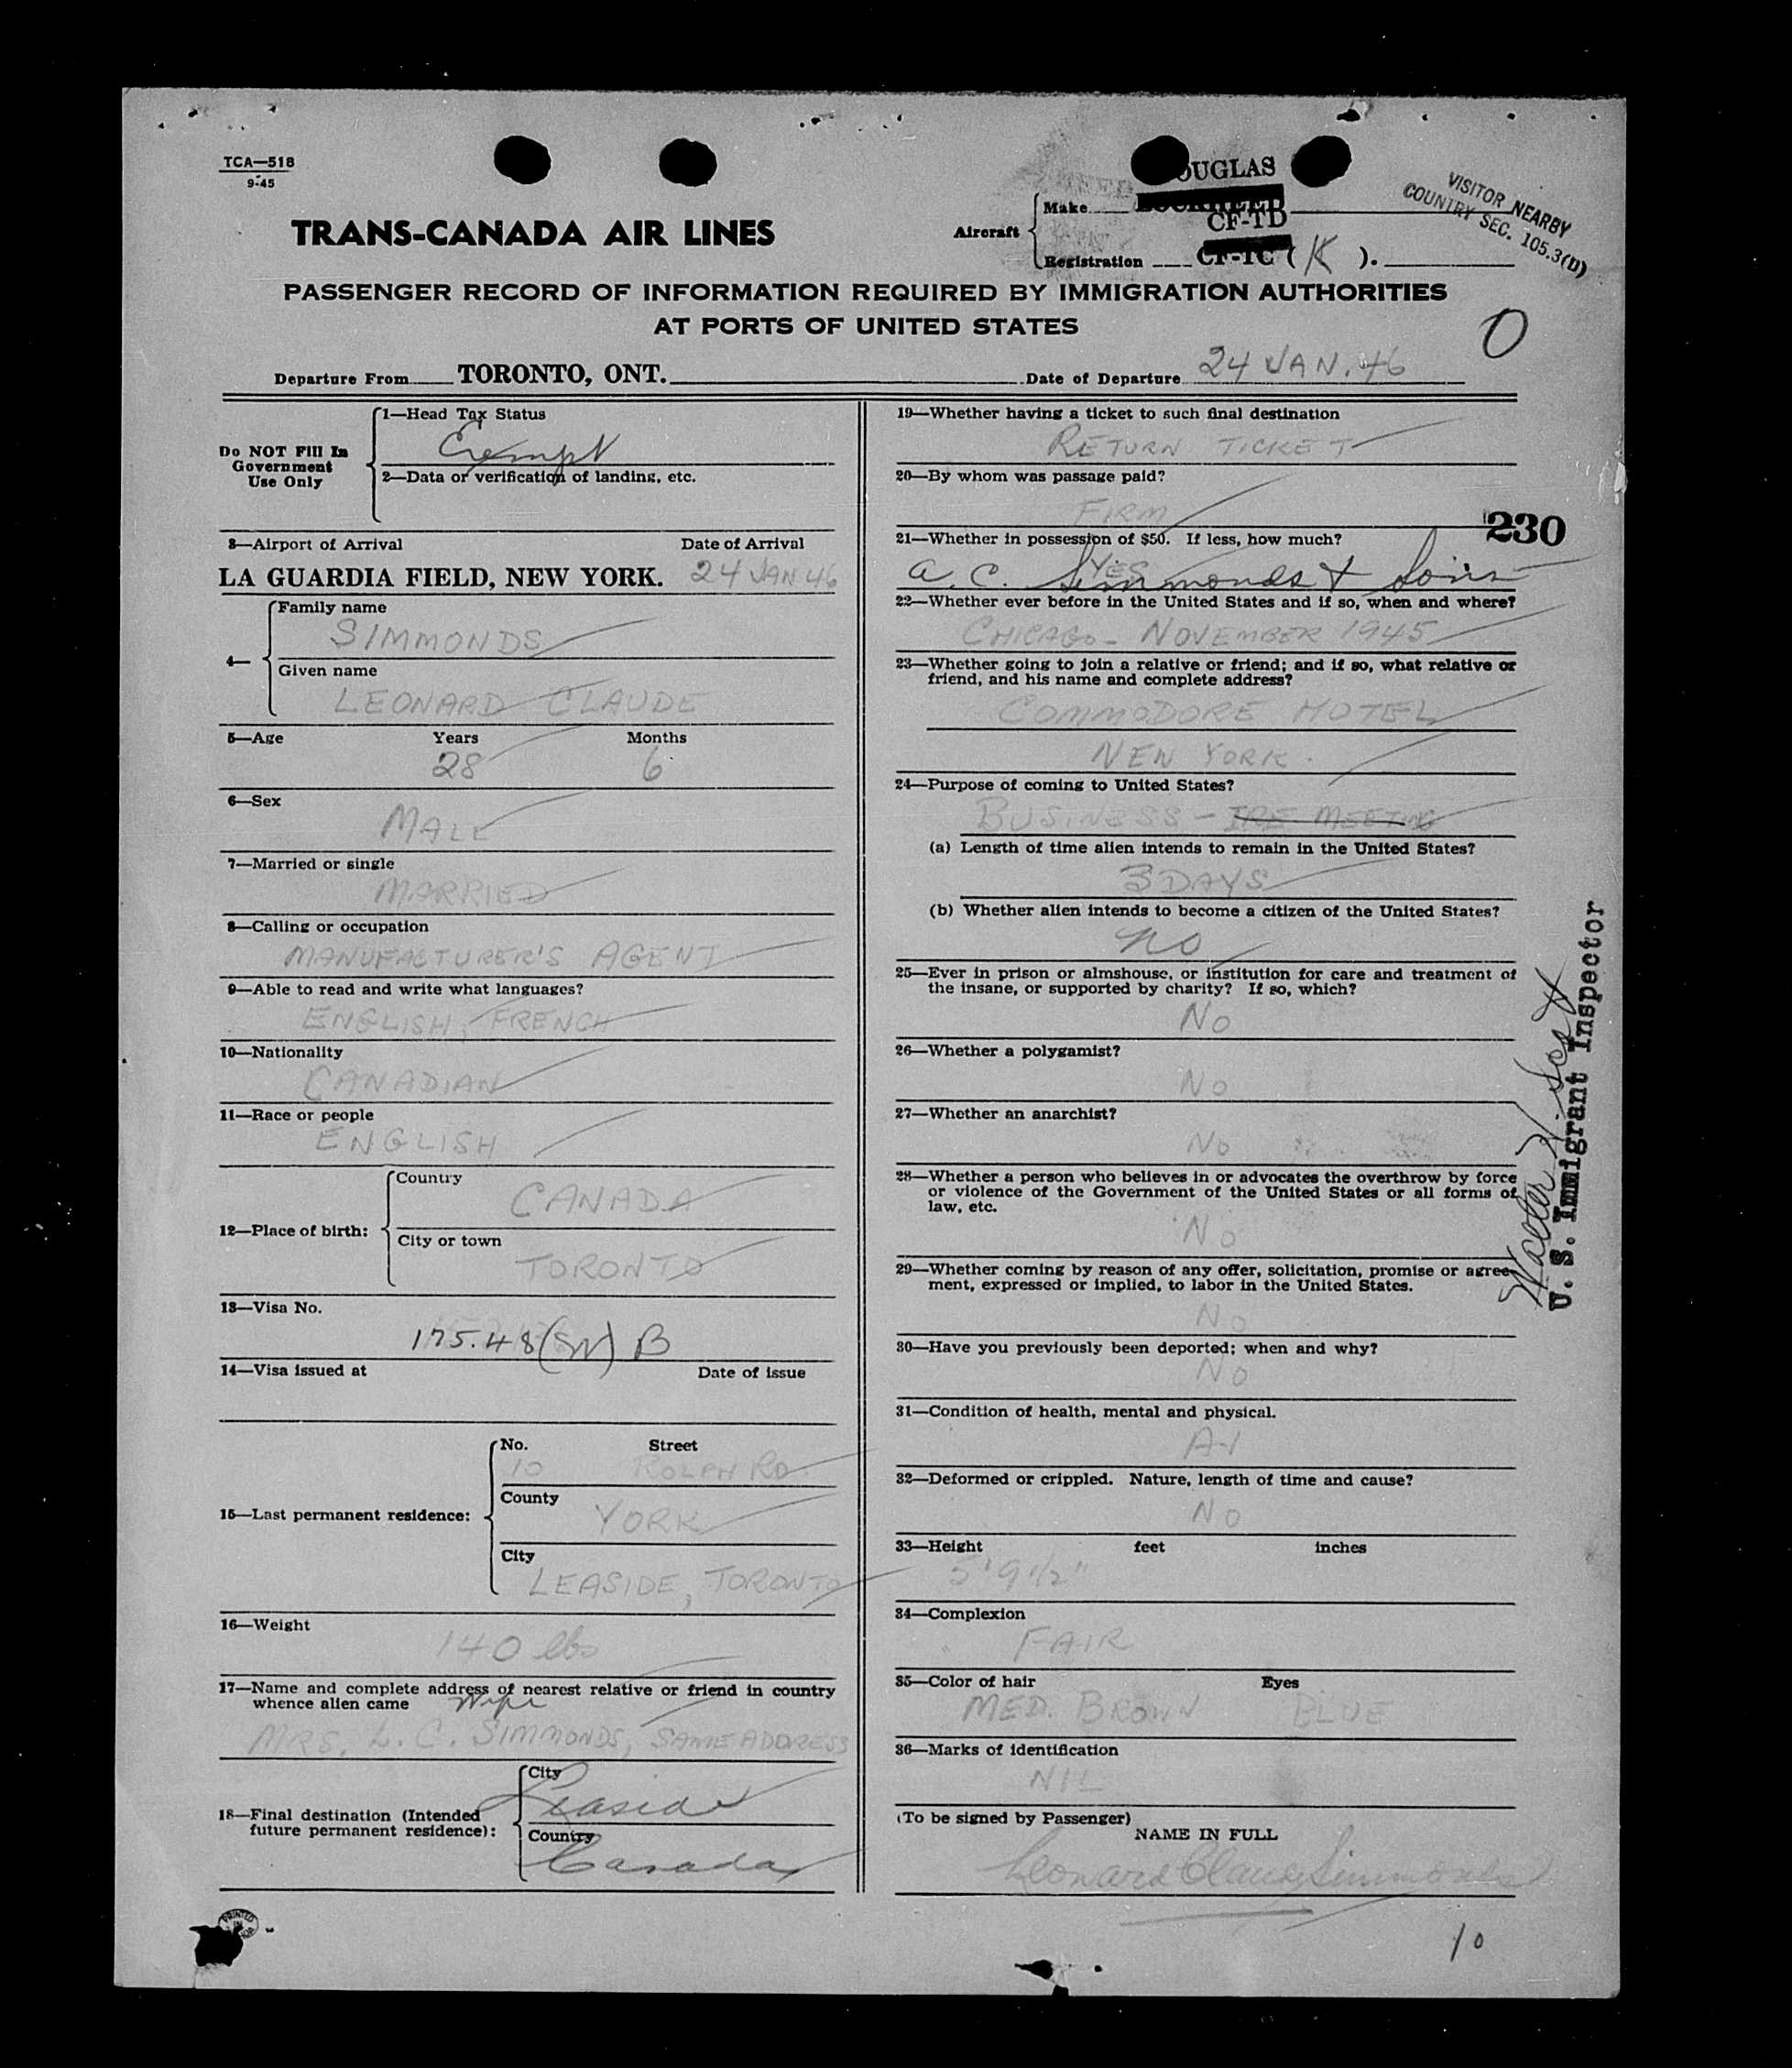 TCA—518
9-45
OUGLAS
VISITOR NEARBY
COUNTRY SEC. 105.3(D)
TRANS-CANADA AIR LINES
Aircraft
Make LOCKHEED
CF-TD
Registration CF-TC (K).
PASSENGER RECORD OF INFORMATION REQUIRED BY IMMIGRATION AUTHORITIES
AT PORTS OF UNITED STATES
O
Departure From TORONTO, ONT. Date of Departure 24 JAN. 46
Do NOT Fill In
Government
Use Only
1—Head Tax Status
Exempt
2—Data or verification of landing, etc.
3—Airport of Arrival Date of Arrival
LA GUARDIA FIELD, NEW YORK. 24 JAN 46
4—
Family name
SIMMONDS
Given name
LEONARD CLAUDE
5—Age Years Months
28 6
6—Sex
MALE
7—Married or single
MARRIED
8—Calling or occupation
MANUFACTURER'S AGENT
9—Able to read and write what languages?
ENGLISH, FRENCH
10—Nationality
CANADIAN
11—Race or people
ENGLISH
12—Place of birth:
Country
CANADA
City or town
TORONTO
13—Visa No.
175.48 (SW) B
14—Visa issued at Date of issue
15—Last permanent residence:
No. Street
10 ROLPH RD.
County
YORK
City
LEASIDE, TORONTO
16—Weight
140 lbs
17—Name and complete address of nearest relative or friend in country
whence alien came Wife
MRS. L. C. SIMMONDS, SAME ADDRESS
18—Final destination (Intended
future permanent residence):
City
Leaside
Country
Canada
19—Whether having a ticket to such final destination
RETURN TICKET
20—By whom was passage paid?
FIRM
230
21—Whether in possession of $50. If less, how much?
YES
A. C. Simmonds & Sons
22—Whether ever before in the United States and if so, when and where?
CHICAGO - NOVEMBER 1945
23—Whether going to join a relative or friend; and if so, what relative or
friend, and his name and complete address?
COMMODORE HOTEL
NEW YORK.
24—Purpose of coming to United States?
BUSINESS - IRE MEETING
(a) Length of time alien intends to remain in the United States?
3 DAYS
(b) Whether alien intends to become a citizen of the United States?
NO
25—Ever in prison or almshouse, or institution for care and treatment of
the insane, or supported by charity? If so, which?
No
26—Whether a polygamist?
No
27—Whether an anarchist?
No
28—Whether a person who believes in or advocates the overthrow by force
or violence of the Government of the United States or all forms of
law, etc.
No
29—Whether coming by reason of any offer, solicitation, promise or agree-
ment, expressed or implied, to labor in the United States.
No
30—Have you previously been deported; when and why?
No
31—Condition of health, mental and physical.
A-1
32—Deformed or crippled. Nature, length of time and cause?
No
33—Height feet inches
5' 9 1/2"
34—Complexion
FAIR
35—Color of hair Eyes
MED. BROWN BLUE
36—Marks of identification
NIL
(To be signed by Passenger)
NAME IN FULL
Leonard Claude Simmonds
Walter H. Scott
U. S. Immigrant Inspector
10